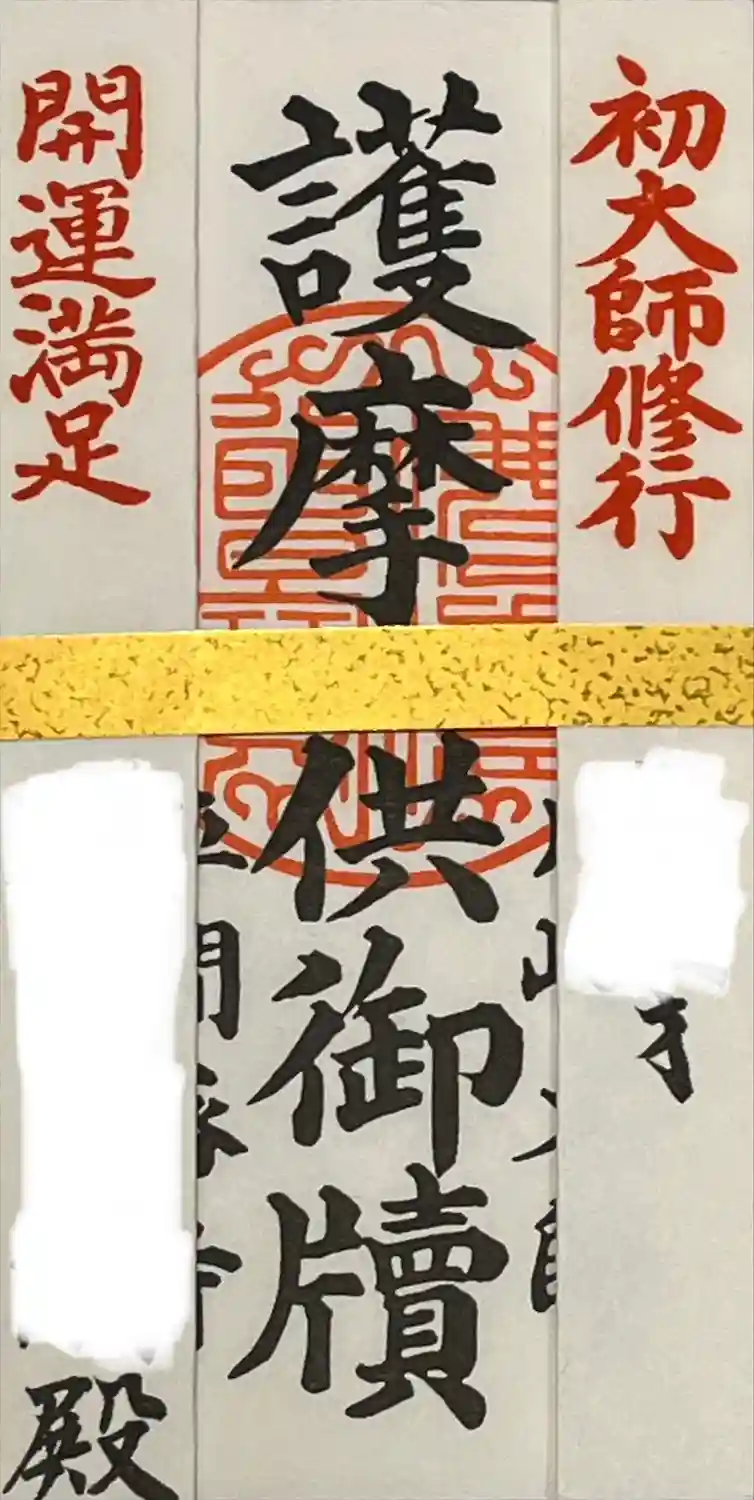 初大師修行
護摩供御牘
開運満足
殿